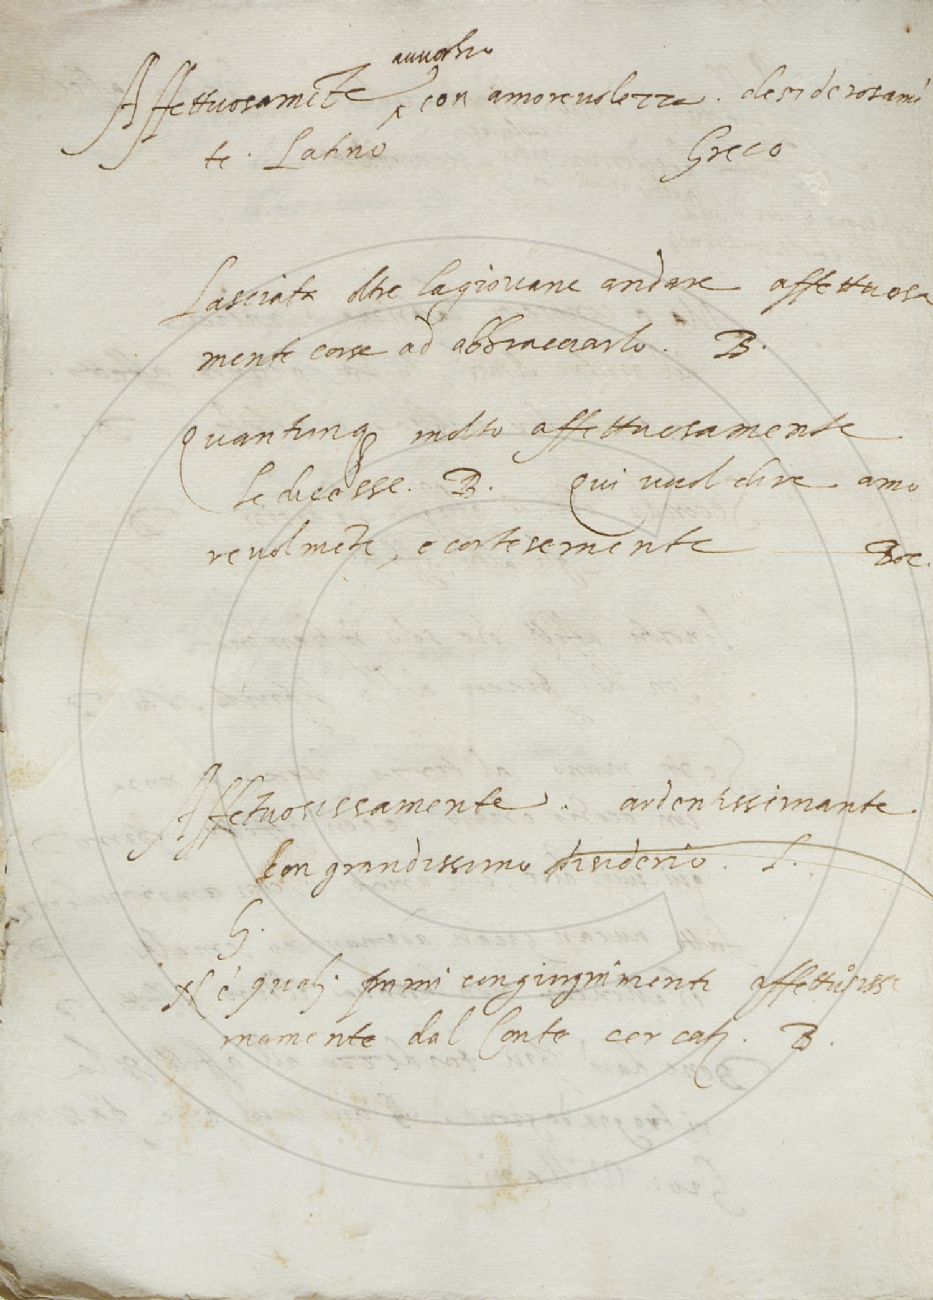 auuerbio
Affettuosamēte con amoreuolezza. desiderosamē
te. Latino Greco
Lasciata oltre la giouane andare affettuosa
mente corse ad abbracciarlo. B.
Quantunq molto affettuosamente
le dicesse. B. Qui vuol dire amo
reuolmēte, e cortesemente Boc.
Affetuosissamente. ardentissimante.
Con grandissimo disiderio. L.
G.
N e quali primi congiugnimenti affettuosiss
mamente dal Conte cercati. B.